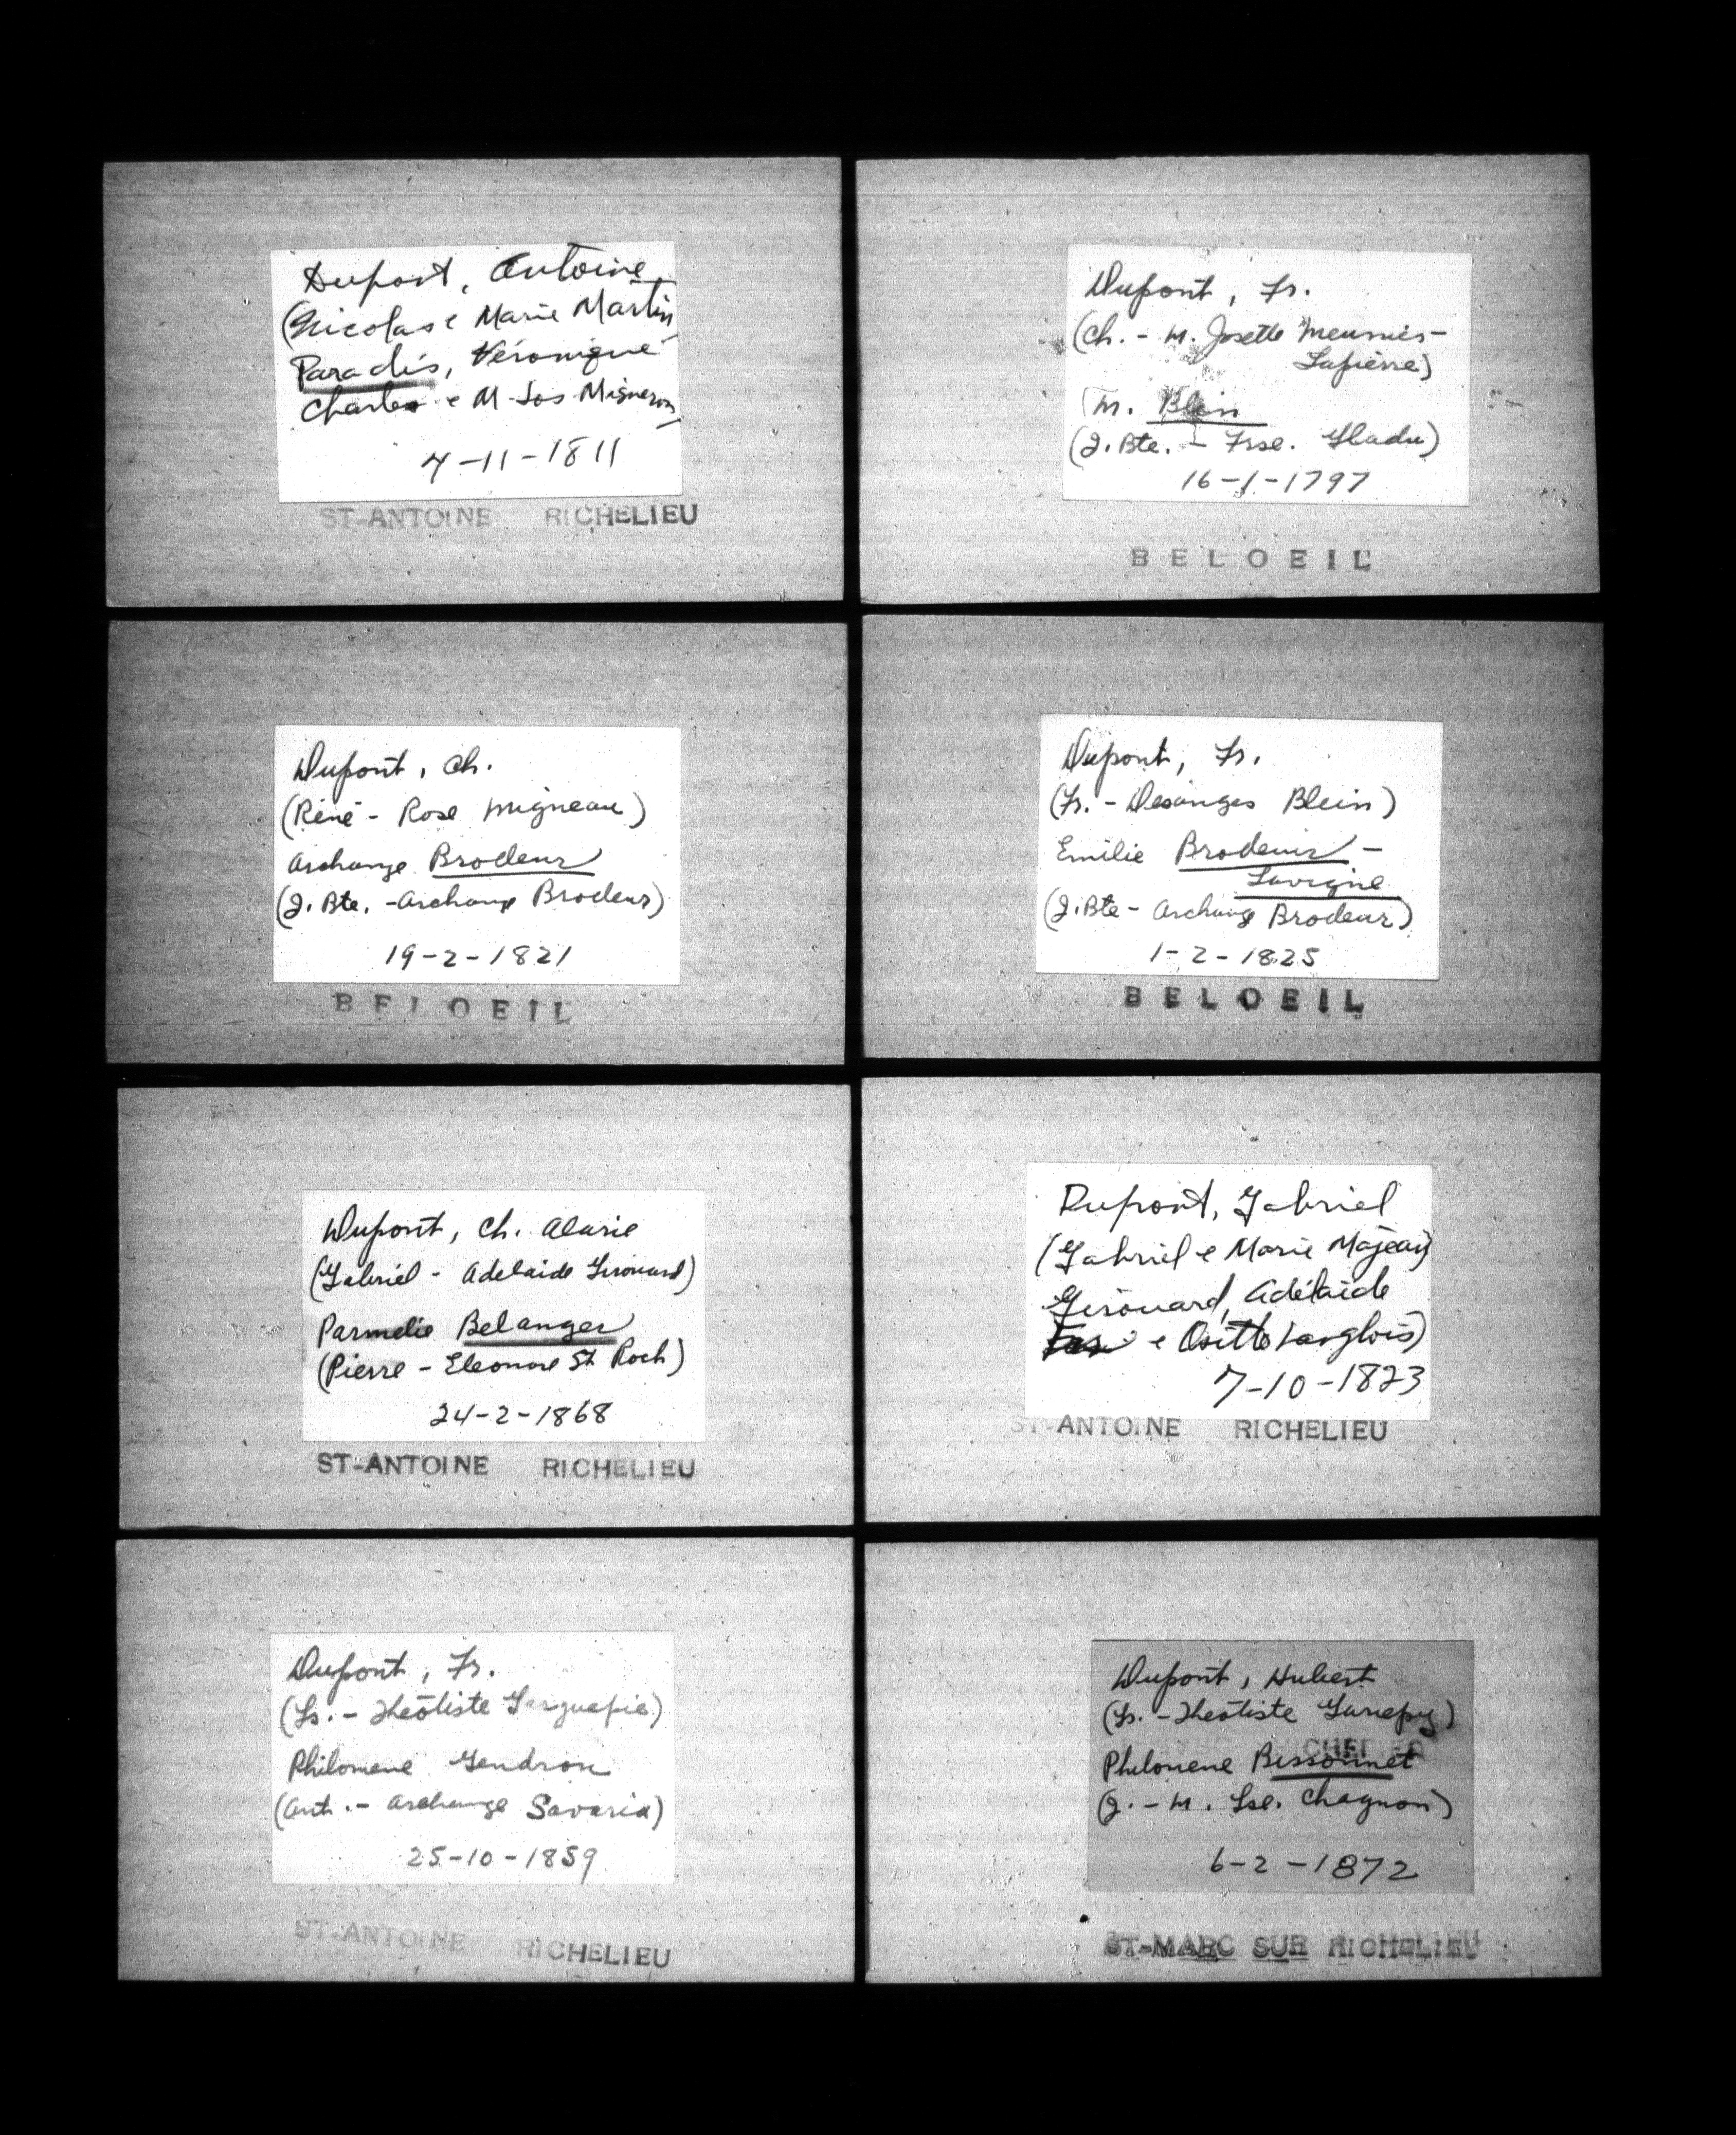 Dupont, Antoine
(Nicolas e Marie Martin
Paradis, Véronique
Charles e M-Jos Migneron
4-11-1811
ST-ANTOINE RICHELIEU
Dupont, Fr.
(Ch. - M. Josette Meunier-
Lapierre)
M. Blein
(J. Bte. - Frse. Gladu)
16-1-1797
BELOEIL
Dupont, Ch.
(Réné - Rose Migneau)
Archange Brodeur
(J. Bte. - Archange Brodeur)
19-2-1821
BELOEIL
Dupont, Fr.
(Fr. - Desanges Blein)
Emilie Brodeur -
Lavigne
(J. Bte - Archange Brodeur)
1-2-1825
BELOEIL
Dupont, Ch. Alarie
(Gabriel - Adelaide Girouard)
Parmelie Belanger
(Pierre - Eleonore St Roch)
24-2-1868
ST-ANTOINE RICHELIEU
Dupont, Gabriel
(Gabriel e Marie Majeau)
Girouard, Adélaide
e Ositte Langlois)
7-10-1823
ST-ANTOINE RICHELIEU
Dupont, Fr.
(Ls. - Théotiste)
Philomene Gendron
(Ant. - Archange Savaria)
25-10-1859
ST-ANTOINE RICHELIEU
Dupont, Hubert
(Ls. - Théotiste Gariepy)
Philomene Bissonnet
(J. - M. Lse. Chagnon)
6-2-1872
ST-MARC SUR RICHELIEU